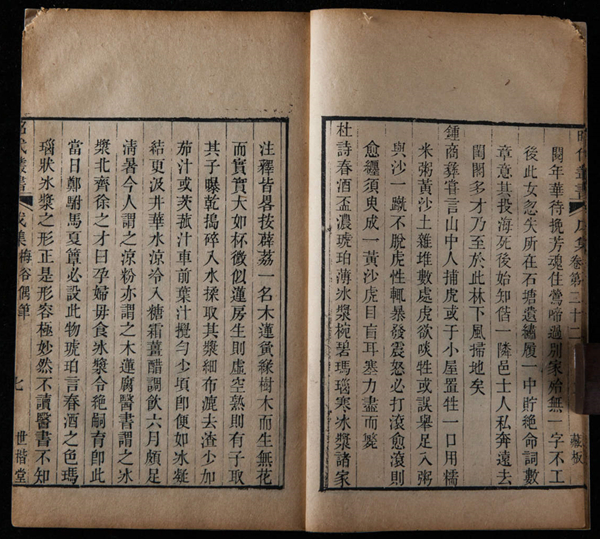 閱年華待挽芳魂住鶯啼過別家始無一字不工
後此女忽失所在石塘遺繡履一中貯絶命詞數
章意其投海死後始知偕一隣邑士人私奔遠去
閨閣多才乃至於此林下風掃地矣
鍾商彝嘗言山中人捕虎或于小屋置牲一口用糯
米粥黃沙土雜堆數處虎欲啖牲或誤舉足入粥
與沙一蹴不脫虎性輒暴發震怒必打滾愈滾則
愈纏須臾成一黃沙虎目盲耳塞力盡而斃
杜詩春酒盃濃琥珀薄冰漿椀碧瑪瑙寒冰漿諸家
昭代叢書
戊集
卷第三十二
藏板
注釋皆畧按薜荔一名木蓮夤緣樹木而生無花
而實實大如杯微似蓮房生則虛空熟則有子取
其子曝乾搗碎入水揉取其漿細布漉去渣少加
茄汁或茨菰汁車前葉汁攪勻少頃即便如冰凝
結更汲井華水涼冷入糖霜薑醋調飲六月頗足
淸暑今人謂之涼粉亦謂之木蓮腐醫書謂之冰
漿北齊徐之才曰孕婦毋食冰漿令絶嗣育卽此
當日鄭駙馬夏簟必設此物琥珀言春酒之色瑪
瑙狀冰漿之形正是形容極妙然不讀醫書不知
昭代叢書
戊集
梅谷偶筆
七
世楷堂